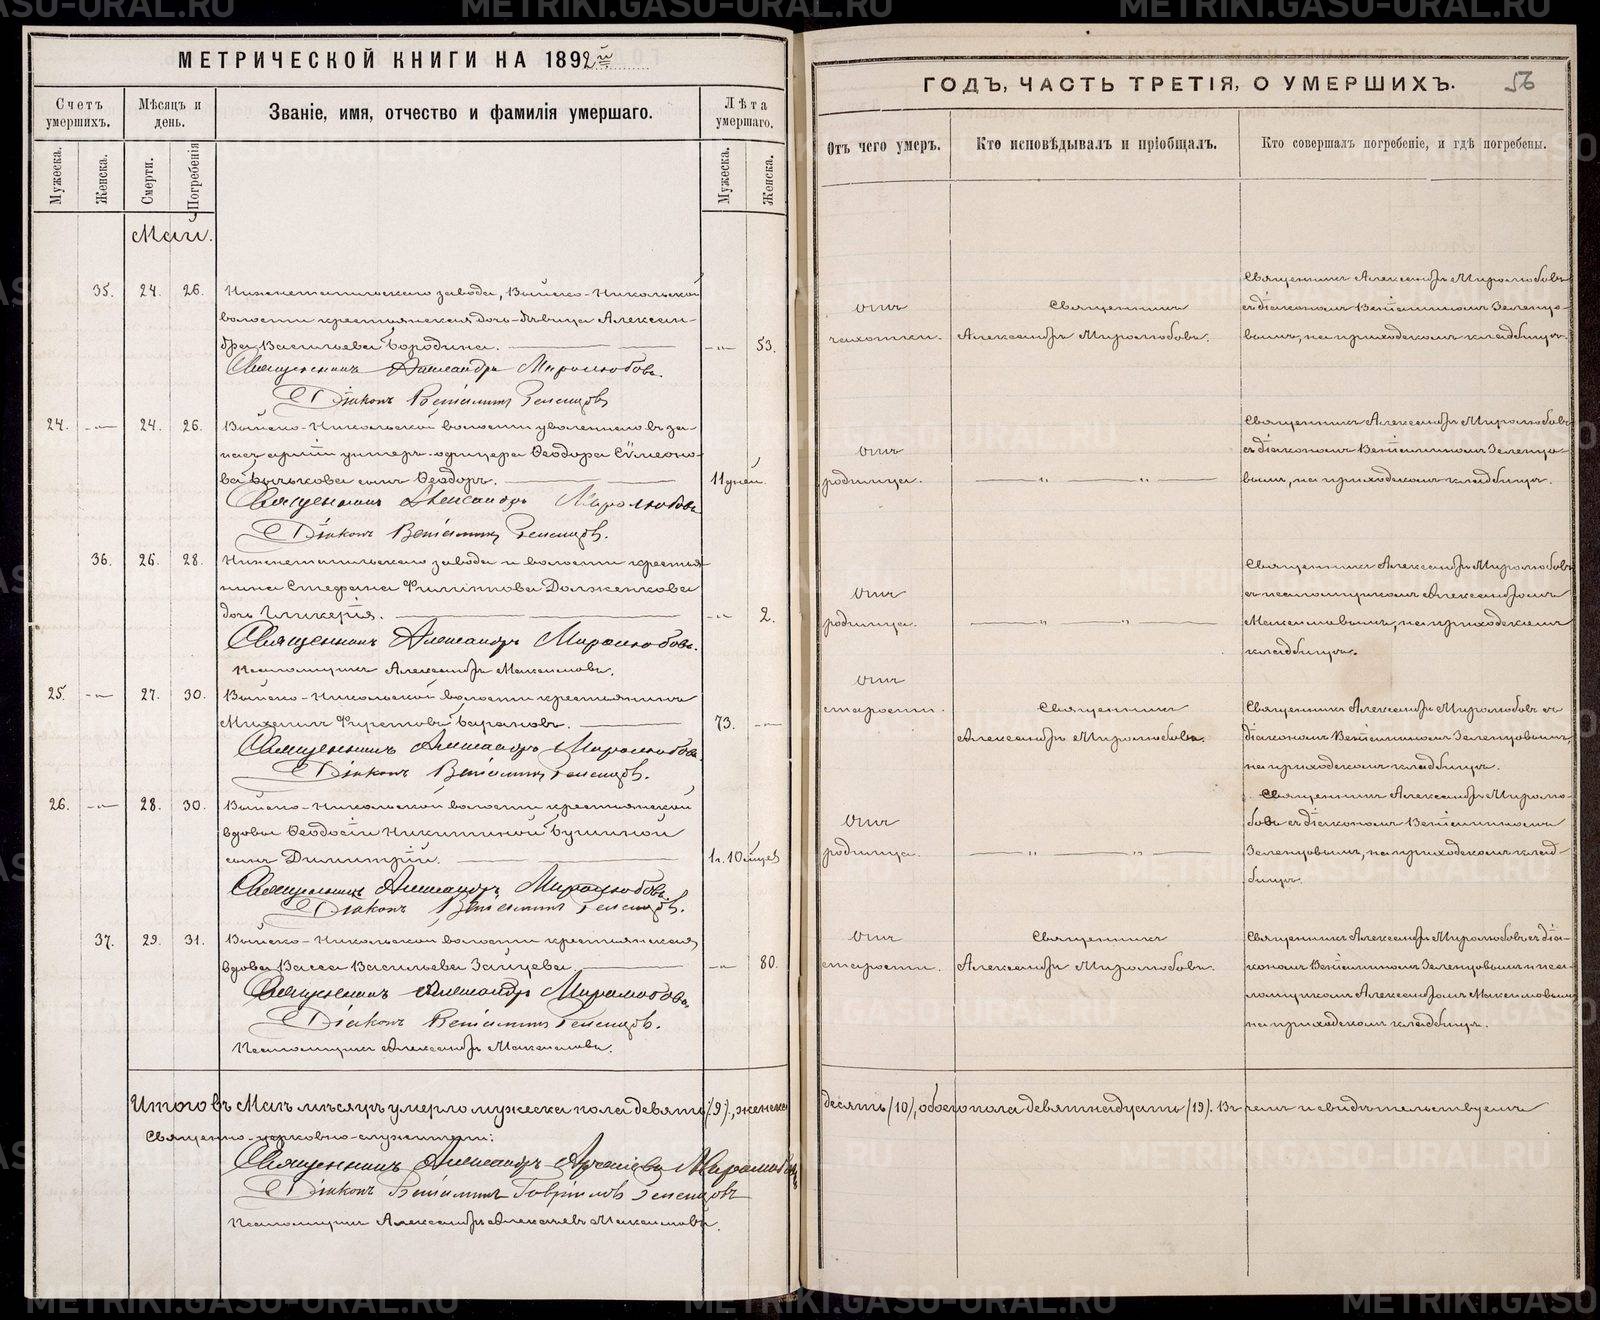 МЕТРИЧЕСКОЙ КНИГИ НА 1892й
Счетъ умершихъ.
Мѣсяцъ и день.
Званіе, имя, отчество и фамилія умершаго.
Лѣта умершаго.
Мужеска.
Женска.
Смерти.
Погребенія
Мужеска.
Женска.
Май.
35. 24. 26. Нижнетагильскаго завода, Выйско-Никольской
волости крестьянская дочь-дѣвица Алексан-
дра Васильева Бородина. -"- 53.
Священникъ Александръ Миролюбовъ.
Діаконъ Веніаминъ Зеленцовъ
24. -"- 24. 26. Выйско-Никольской волости уволеннаго въ за-
пасъ арміи унтеръ-офицера Ѳеодора Сѵмеоно-
ва Бычькова сынъ Ѳеодоръ. 11 дней.
Священникъ Александръ Миролюбовъ
Діаконъ Веніаминъ Зеленцовъ.
36. 26. 28. Нижнетагильскаго завода и волости крестья-
нина Стефана Филиппова Долженкова
дочь Гликерія. -"- 2.
Священникъ Александръ Миролюбовъ.
Псаломщикъ Александръ Максимовъ.
25. -"- 27. 30. Выйско-Никольской волости крестьянинъ
Михаилъ Фирстовъ Барановъ. 73. -"-
Священникъ Александръ Миролюбовъ.
Діаконъ Веніаминъ Зеленцовъ.
26. -"- 28. 30. Выйско-Никольской волости крестьянской
вдовы Ѳеодосіи Никитиной Бушиной
сынъ Димитрій. 1 г. 10 мцев
Священникъ Александръ Миролюбовъ.
Діаконъ Веніаминъ Зеленцовъ.
37. 29. 31. Выйско-Никольской волости крестьянская
вдова Васса Васильева Зайцева -"- 80.
Священникъ Александръ Миролюбовъ.
Діаконъ Веніаминъ Зеленцовъ.
Псаломщикъ Александръ Максимовъ.
Итого въ Маѣ мѣсяцѣ умерло мужеска пола девять (9), женска
Священно-церковно-служители:
Священникъ Александръ Миролюбовъ
Діаконъ Веніаминъ Гавріиловъ Зеленцовъ
Псаломщикъ Александръ Алексѣевъ Максимовъ.
ГОДЪ, ЧАСТЬ ТРЕТІЯ, О УМЕРШИХЪ. 56
Отъ чего умеръ.
Кто исповѣдывалъ и пріобщалъ.
Кто совершалъ погребеніе, и гдѣ погребены.
Отъ
чахотки.
Священникъ
Александръ Миролюбовъ.
Священникъ Александръ Миролюбовъ
съ діакономъ Веніаминомъ Зеленцо-
вымъ, на приходскомъ кладбищѣ.
Отъ
родимца.
" "
Священникъ Александръ Миролюбовъ
съ діакономъ Веніаминомъ Зеленцо-
вымъ, на приходскомъ кладбищѣ.
Отъ
родимца.
" "
Священникъ Александръ Миролюбовъ
съ псаломщикомъ Александромъ
Максимовымъ, на приходскомъ
кладбищѣ.
Отъ
старости.
Священникъ
Александръ Миролюбовъ.
Священникъ Александръ Миролюбовъ съ
діакономъ Веніаминомъ Зеленцовымъ,
на приходскомъ кладбищѣ.
Отъ
родимца.
" "
Священникъ Александръ Миролю-
бовъ съ діакономъ Веніаминомъ
Зеленцовымъ, на приходскомъ клад-
бищѣ.
Отъ
старости.
Священникъ
Александръ Миролюбовъ.
Священникъ Александръ Миролюбовъ съ діа-
кономъ Веніаминомъ Зеленцовымъ и пса-
ломщикомъ Александромъ Максимовымъ
на приходскомъ кладбищѣ.
десять (10), обоего пола девятнадцать (19). Въ чемъ и свидѣтельствуемъ
METRIKI.GASU-URAL.RU